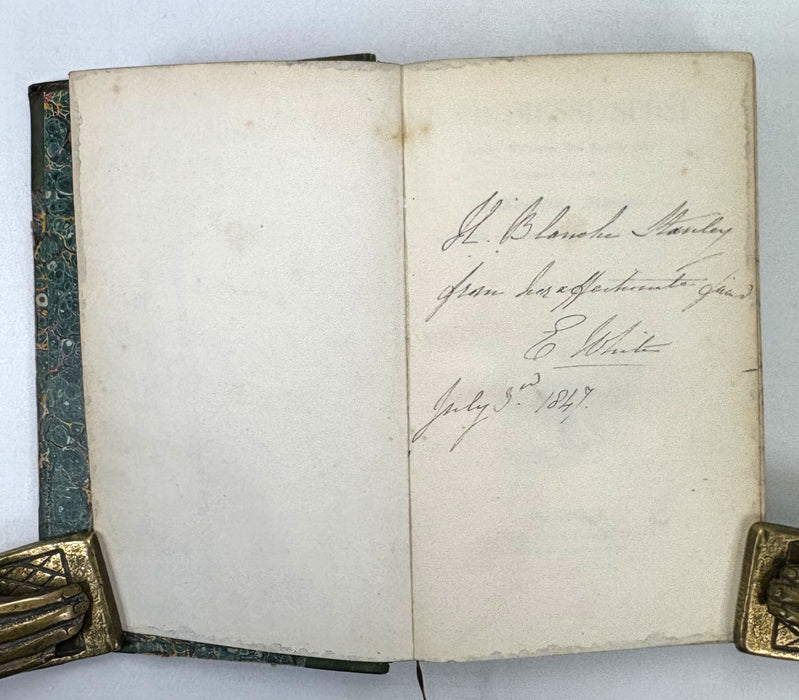 H. Blanche Stanley
from her affectionate friend
E White
July 3rd. 1847.